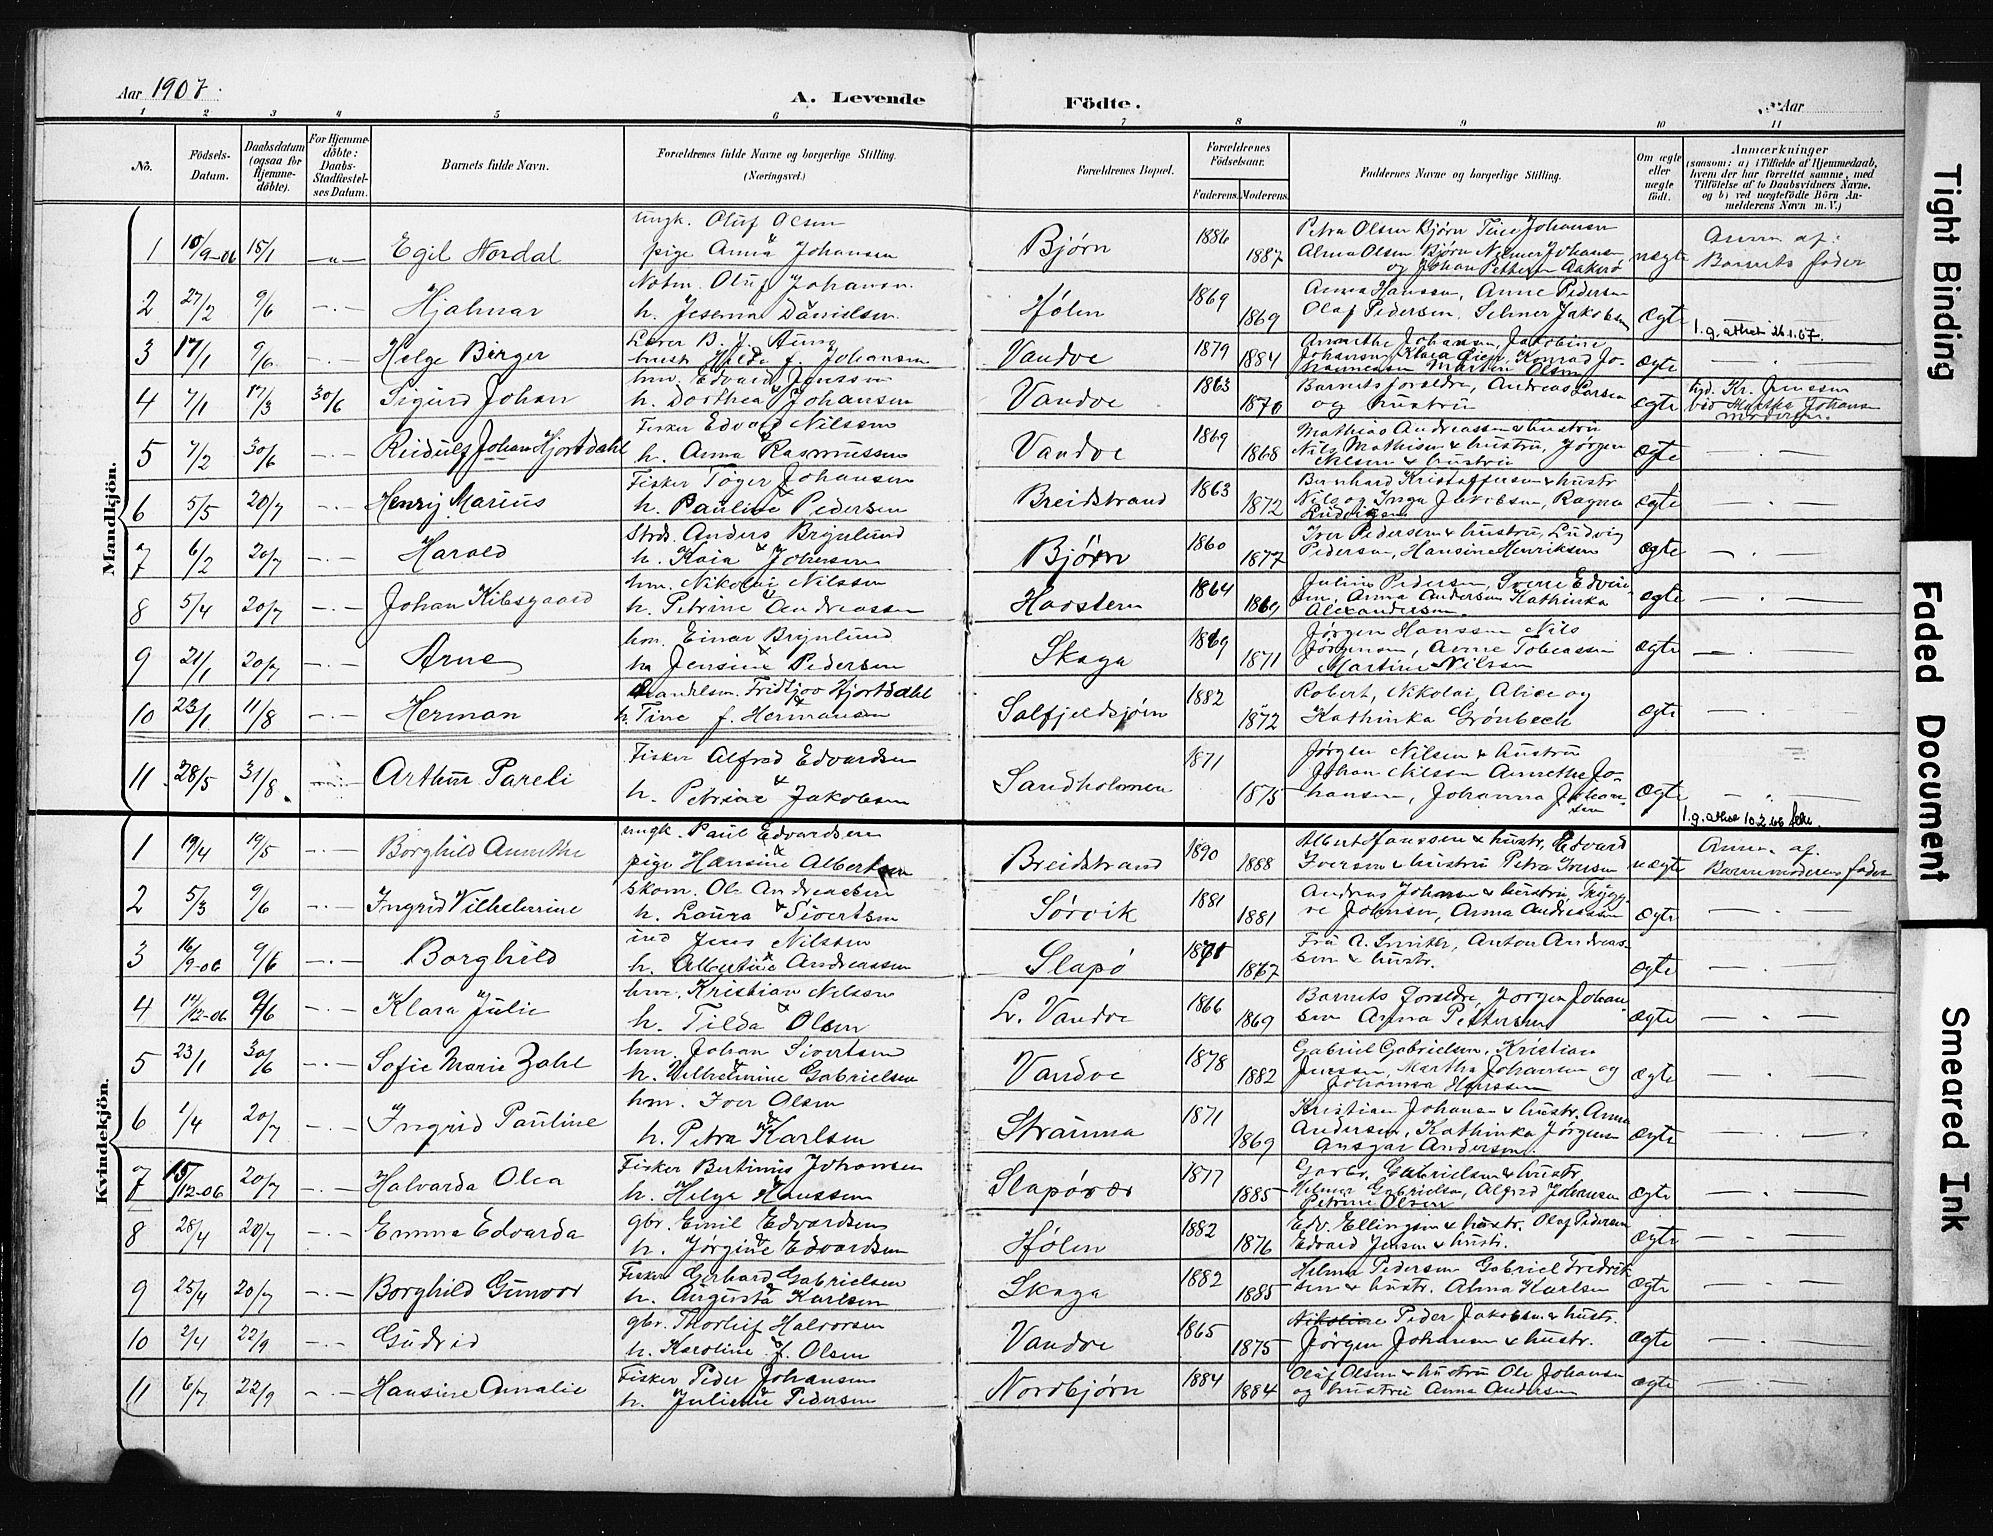 Aar 1907.
A. Levende Födte.
Aar
1 2 3 4 5 6 7 8 9 10 11
No.
Födsels-Datum.
Daabsdatum (ogsaa for Hjemme-döbte).
For Hjemme-döbte: Daabs-Stadfæstel-ses Datum.
Barnets fulde Navn.
Forældrenes fulde Navne og borgerlige Stilling. (Næringsvei.)
Forældrenes Bopæl.
Forældrenes Födselsaar.
Faderens. Moderens.
Faddernes Navne og borgerlige Stilling.
Om ægte eller uægte födt.
Anmærkninger (saasom: a) i Tilfælde af Hjemmedaab, hvem der har forrettet samme, med Tilföielse af to Daabsvidners Navne. og b) ved uægtefödte Börn Anmelderens Navn m. V.)
Mandkjön.
ungk. Oluf Olsen
1 10/9-06 15/1 Egil Nordal pige Anna Johansen Bjørn 1886 1887 Petra Olsen Bjørn Tine Johansen
Alma Olsen Bjørn Nelmer Johansen og Johan Pettersen Aakerø uægte Anm af: Barnets fader
Notm. Oluf Johansen
2 27/2 9/6 Hjalmar h. Jesema Danielsen Hølen 1869 1869 Anna Hanssen, Anne Pedersen
Olaf Pedersen, Selmer Jakobsen ægte 1.g. attest 26.1.67.
Lærer B. J. Aune
3 17/1 9/6 Helge Birger hustr Hilda f. Johansen Vandve 1879 1884 Annethe Johansen, Jakobine
Johansen, Klara Aien, Konrad Johannessen Martin Olsen ægte
hm. Edvard Jenssen
4 7/1 17/3 30/6 Sigurd Johan h. Dorthea Johansen Vandve 1863 1870 Barnets forældre, Andreas Larsen
og hustru ægte Kr. Jenssen
ved Martha Johansen
Fisker Edvard Nilssen
5 7/2 30/6 Reidulf Johan Hjortdahl h. Anna Rasmussen Vandve 1869 1868 Mathias Andreassen & hustru
Nils Mathisen & hustru, Jørgen Nilsen & hustru ægte
Fisker Tøger Johansen
6 5/5 20/7 Henrij Marius h. Pauline Pedersen Breidstrand 1863 1872 Bernhard Kristoffersen & hustr
Nils og Inga Jakobsen, Ragna Ludvigsen ægte
Strds. Anders Brynlund
7 6/2 20/7 Harald h. Kaia Johansen Bjørn 1860 1877 Iver Pedersen & hustru, Ludvig
Pedersen, Hansine Henriksen ægte
hm. Nikolai Nilssen
8 5/4 20/7 Johan Kibsgaard h. Petrine Andreassen Havstein 1864 1869 Julius Pedersen, Sverre Edvinsen, Anna Andersen Kathinka
Alexandersen. ægte
hm. Einar Brynlund
9 21/1 20/7 Arne h. Jensine Pedersen Skaga 1869 1871 Jørgen Hanssen Nils
Jørgensen, Anne Tobiassen
Martine Nilssen ægte
Handelsm. Fridtjov Hjortdahl
10 23/1 11/8 Herman h. Tine f. Hermansen Solfjeldsjøen 1882 1872 Robert, Nikolai, Alice og
Kathinka Grønbech ægte
Fisker Alfred Edvardsen
11 28/5 31/8 Arthur Pareli h. Petrine & Jakobsen Sandholmen 1871 1875 Jørgen Nilsen & hustru
Johan Nilssen Annethe Johansen, Johanna Johansen ægte
Kvindekjön.
ungk. Paul Edvardsen
1 19/4 19/5 Borghild Annethe pige Hansine Albertsen Breidstrand 1890 1888 Albert Hanssen & hustr, Edvard
Iversen & hustru Petra Iversen uægte 1.g. attest 10.2.66
Anm. af. Barnemoderens fader
Skom. Ole Andreassen
2 5/3 9/6 Ingrid Vilhelmine h. Laura Sivertsen Sørvik 1881 1881 Andreas Johansen & hustru Tryggve Johansen, Anna Andreassen ægte
ind Jens Nilssen
3 16/9-06 9/6 Borghild h. Albertine Andreassen Slapø 1871 1867 Fru A. Smith, Anton Andreassen & hustr. ægte
hm. Kristian Nilssen
4 12-06 9/6 Klara Julie h. Tilda Olsen L. Vandve 1866 1869 Barnets forældre, Jørgen Johansen Anna Pettersen ægte
hm. Johan Sivertsen
5 23/1 30/6 Sofie Marie Zahl h. Wilhelmine Gabrielsen Vandve 1878 1882 Gabriel Gabrielsen, Kristian
Jenssen, Martha Johansen og
Johanna Hanssen ægte
hm. Iver Olsen
6 1/4 20/7 Ingrid Pauline h. Petra Karlsen Stramna 1871 1869 Kristian Johansen & hustr. Anna
Andersen, Kathinka Jørgensen
Ansgar Andersen. ægte
Fisker Bertinus Johansen
7 15/12-06 20/7 Halvarda Olea h. Helga Hanssen Slapøvær 1877 1885 Gabr. Gabrielsen & hustr
Helmer Gabrielsen, Alfred Johansen
Petrine Olsen ægte
gbr. Emil Edvardsen
8 28/4 20/7 Emma Edvarda h. Jørgine Edvardsen Hølen 1882 1876 Edv. Ellingsen & hustr. Olaf Pedersen
Edvard Jensen & hustr. ægte
Fisker Gerhard Gabrielsen
9 25/4 20/7 Borghild Gunvor h. Augusta Karlsen Skaga 1882 1885 Helma Pedersen Gabriel Fredriksen & hustr. Alma Karlsen ægte
gbr. Thorleif Halvorsen
10 2/4 22/9 Gudrid h. Karoline f. Olsen Vandve 1865 1875 Nikoline Peder Jakobsen & hustr.
Jørgen Johansen & hustr. ægte
Fisker Peder Johansen
11 6/7 22/9 Hansine Amalie h. Juliane Pedersen Nordbjørn 1884 1884 Olaf Olsen & hustru Ole Johansen
og hustru Anna Andersen ægte
Tight Binding
Faded Document
Smeared Ink